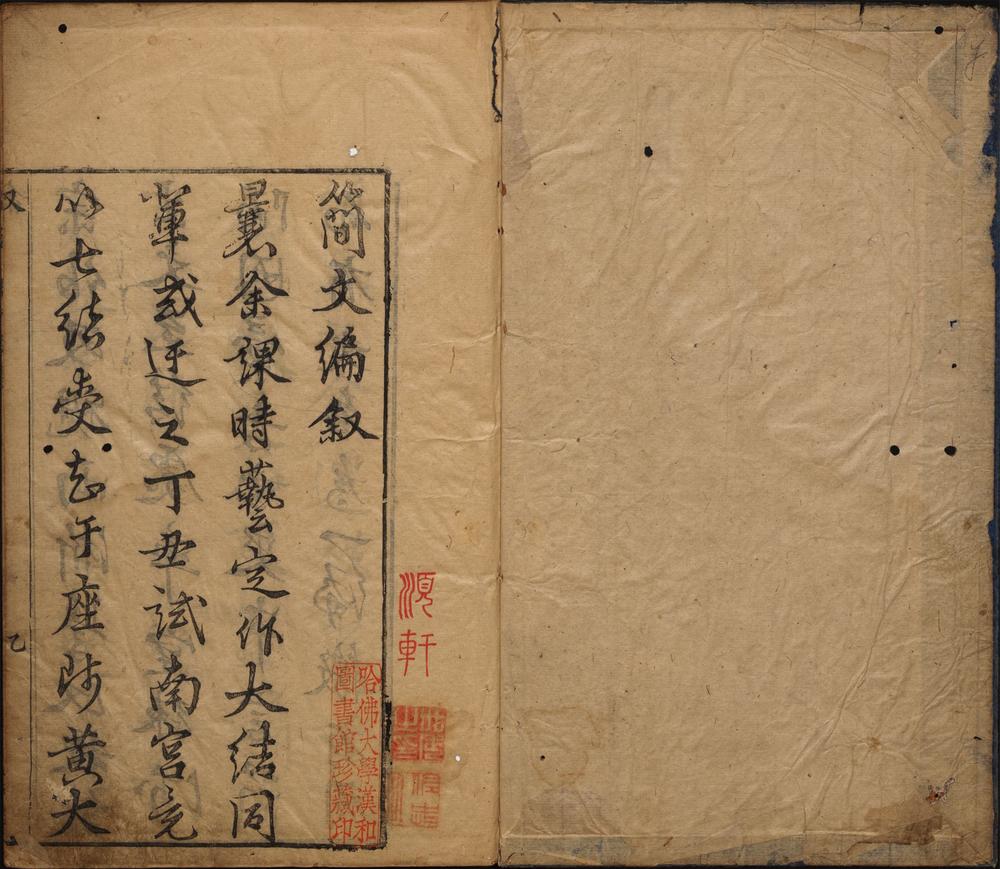 湏軒
哈佛大學漢和
圖書館珍藏印
簡文編叙
曩余課時藝定作大結同
輩或迂之丁丑試南宮竟
以七結受知于座師黃大